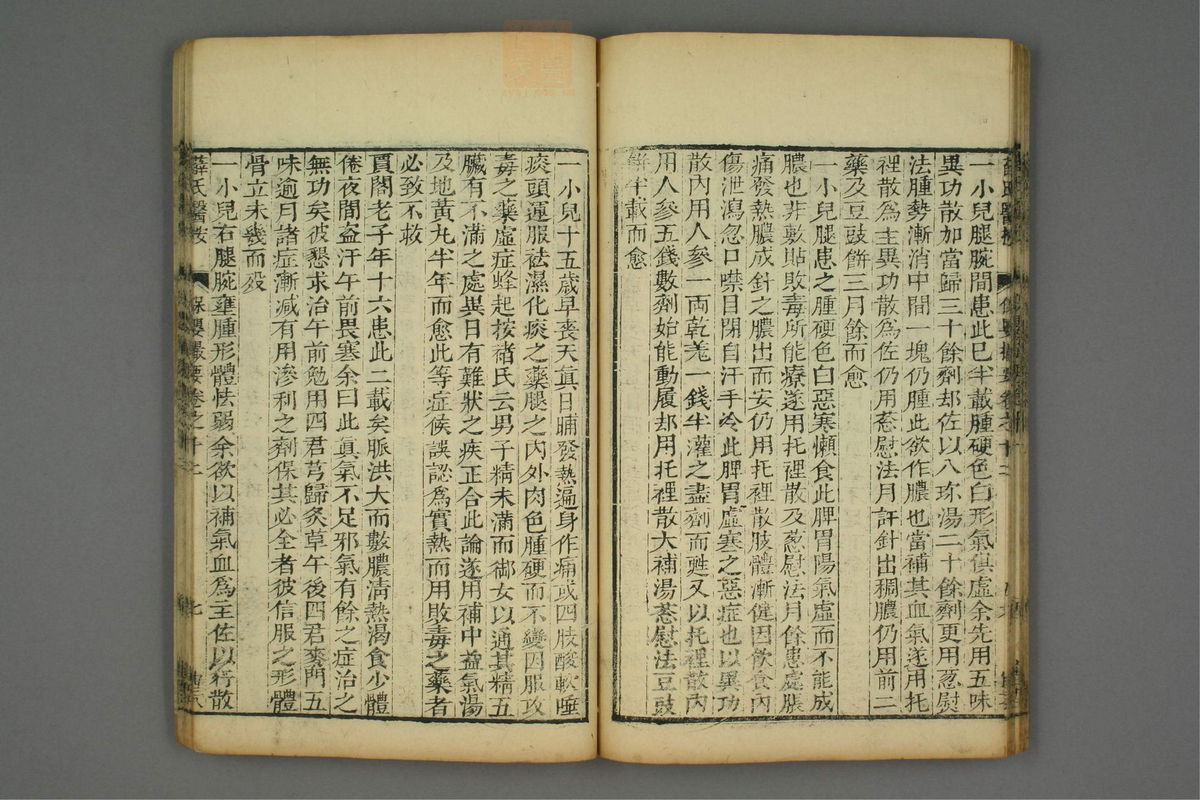 一小兒腿腕間患此已半載腫硬色白形氣俱虛余先用五味
異功散加當歸三十餘劑却佐以八珍湯二十餘劑更用葱慰
法腫勢漸消中間一塊仍腫此欲作膿也當補其血氣遂用托
裡散爲主異功散爲佐仍用葱慰法月許針出稠膿仍用前二
藥及豆豉餅三月餘而愈
一小兒腿患之腫硬色白惡寒懶食此脾胃陽氣虛而不能成
膿也非敷貼敗毒所能療遂用托裡散及葱慰法月餘患處脹
痛發熱膿成針之膿出而安仍用托裡散肢體漸健因飲食內
傷泄瀉忽口噤目閉自汗手冷此脾胃虛寒之惡症也以異功
散內用人參一兩乾羗一錢半灌之盡劑而甦又以托裡散內
用人參五錢數劑始能動履却用托裡散大補湯葱慰法豆豉
餅半載而愈
一小兒十五歲早喪天眞日晡發熱遍身作痛或四肢酸軟唾
痰頭運服祛濕化痰之藥腿之內外肉色腫硬而不變因服攻
毒之藥虛症蜂起按褚氏云男子精未滿而御女以通其精五
臟有不滿之處異日有難狀之疾正合此論遂用補中益氣湯
及地黃丸半年而愈此等症候誤認爲實熱而用敗毒之藥者
必致不救
賈閣老子年十六患此二載矣脈洪大而數膿淸熱渴食少體
倦夜間盗汗午前畏寒余曰此眞氣不足邪氣有餘之症治之
無功矣彼懇求治午前勉用四君芎歸炙草午後四君麥門五
味逾月諸症漸減有用滲利之劑保其必全者彼信服之形體
骨立未幾而殁
一小兒右腿腕壅腫形體怯弱余欲以補氣血爲主佐以行散
薛氏醫按
保嬰撮要卷之十二
七